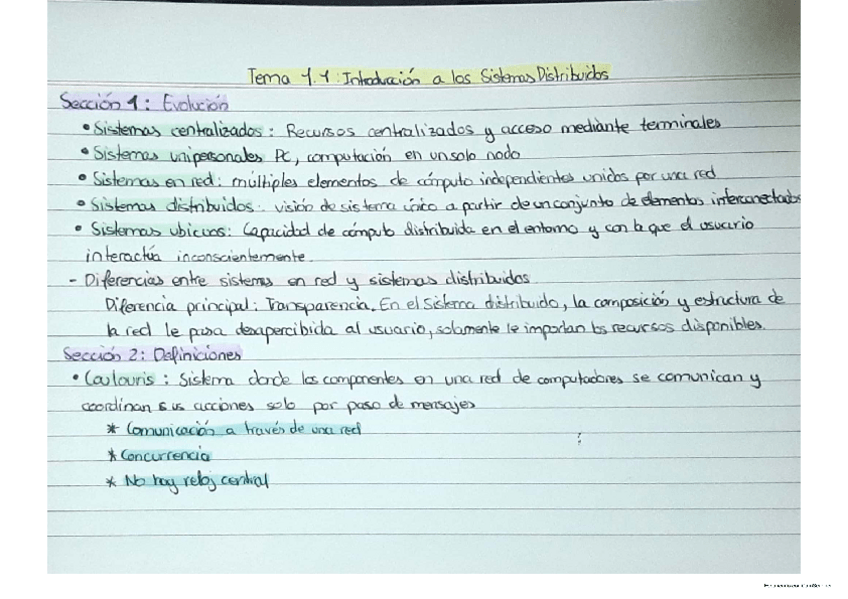 Tema 1.1: Introducción a los Sistemas Distribuidos
Sección 1: Evolución
• Sistemas centralizados: Recursos centralizados y acceso mediante terminales
• Sistemas unipersonales PC, computación en un solo nodo
• Sistemas en red: múltiples elementos de cómputo independientes unidos por una red
• Sistemas distribuidos: visión de sistema único a partir de un conjunto de elementos interconectados
• Sistemas ubicuos: Capacidad de cómputo distribuida en el entorno y con la que el usuario
interactúa inconscientemente.
- Diferencias entre sistemas en red y sistemas distribuidos
Diferencia principal: Transparencia. En el Sistema distribuido, la composición y estructura de
la red le pasa desapercibida al usuario, solamente le importan los recursos disponibles.
Sección 2: Definiciones
• Coulouris: Sistema donde los componentes en una red de computadores se comunican y
coordinan sus acciones solo por paso de mensajes
* Comunicación a través de una red
* Concurrencia
* No hay reloj central